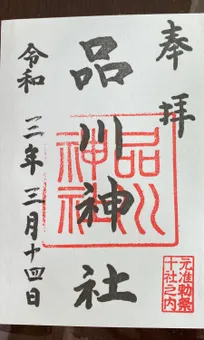 奉拝
品川神社
品川
神社
令和三年三月十四日
元准勅祭
十社之内